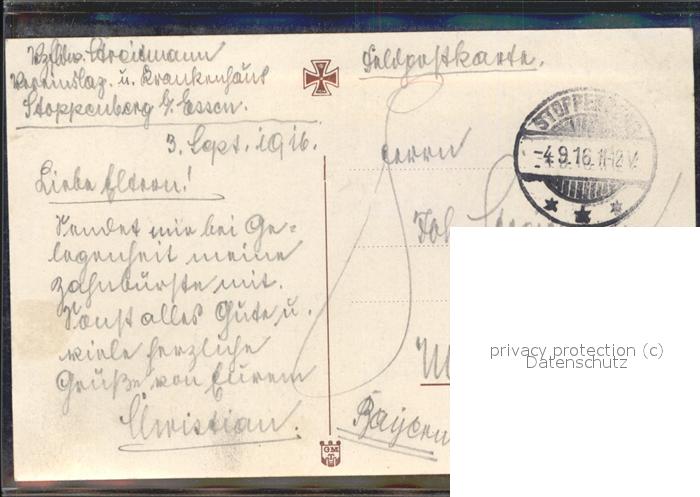 Vereinslaz. u. Krankenhaus
Stoppenberg b/ Essen.
3. Sept. 1916.
Liebe Eltern!
Sendet mir bei Ge=
legenheit meine
Zahnbürste mit.
Sonst alles Gute u.
viele herzliche
Grüße von Eurem
Christian.
Feldpostkarte.
STOPPENBERG
-4.9.16.11-12V.
Herrn
Joh.
Bayern
GMT
privacy protection (c)
Datenschutz